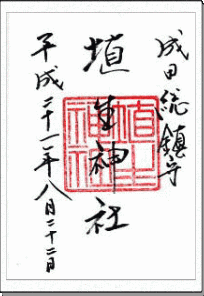 成田総鎮守
埴生神社
平成二十一年八月二十二日
埴生
神社